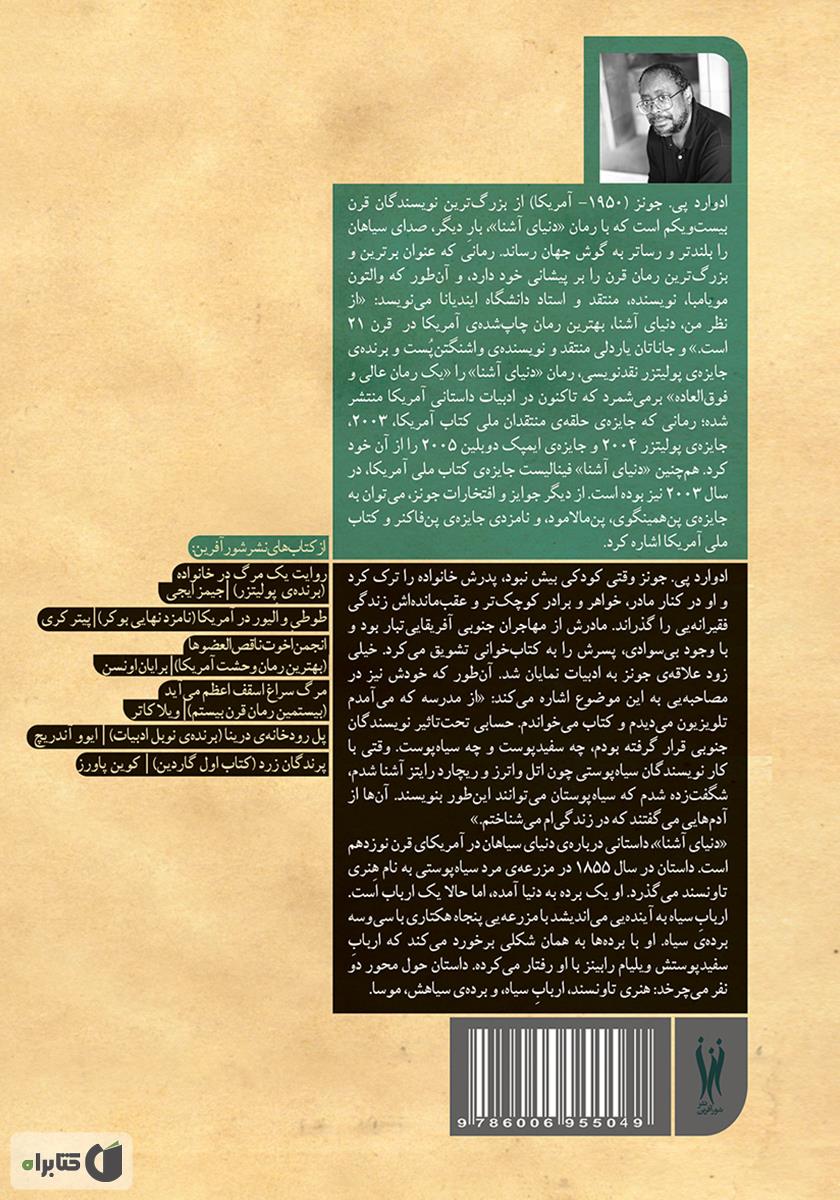 ادوارد پی. جونز (۱۹۵۰- آمریکا) از بزرگ‌ترین نویسندگان قرن
بیست‌ویکم است که با رمان «دنیای آشنا»، بارِ دیگر، صدای سیاهان
را بلندتر و رساتر به گوش جهان رساند. رمانی که عنوان برترین و
بزرگ‌ترین رمان قرن را بر پیشانی خود دارد، و آن‌طور که والتون
مویامبا، نویسنده، منتقد و استاد دانشگاه ایندیانا می‌نویسد: «از
نظر من، دنیای آشنا، بهترین رمان چاپ‌شده‌ی آمریکا در قرن ۲۱
است.» و جاناتان یاردلی منتقد و نویسنده‌ی واشنگتن‌پُست و برنده‌ی
جایزه‌ی پولیتزر نقدنویسی، رمان «دنیای آشنا» را «یک رمان عالی و
فوق‌العاده» برمی‌شمرد که تاکنون در ادبیات داستانی آمریکا منتشر
شده؛ رمانی که جایزه‌ی حلقه‌ی منتقدان ملی کتاب آمریکا، ۲۰۰۳،
جایزه‌ی پولیتزر ۲۰۰۴ و جایزه‌ی ایمپک دوبلین ۲۰۰۵ را از آن خود
کرد. هم‌چنین «دنیای آشنا» فینالیست جایزه‌ی کتاب ملی آمریکا، در
سال ۲۰۰۳ نیز بوده است. از دیگر جوایز و افتخارات جونز، می‌توان به
جایزه‌ی پن‌همینگوی، پن‌مالامود، و نامزدی جایزه‌ی پن‌فاکنر و کتاب
ملی آمریکا اشاره کرد.
ادوارد پی. جونز وقتی کودکی بیش نبود، پدرش خانواده را ترک کرد
و او در کنار مادر، خواهر و برادر کوچک‌تر و عقب‌مانده‌اش زندگی
فقیرانه‌یی را گذراند. مادرش از مهاجران جنوبی آفریقایی‌تبار بود و
با وجود بی‌سوادی، پسرش را به کتاب‌خوانی تشویق می‌کرد. خیلی
زود علاقه‌ی جونز به ادبیات نمایان شد. آن‌طور که خودش نیز در
مصاحبه‌یی به این موضوع اشاره می‌کند: «از مدرسه که می‌آمدم
تلویزیون می‌دیدم و کتاب می‌خواندم. حسابی تحت‌تاثیر نویسندگان
جنوبی قرار گرفته بودم، چه سفیدپوست و چه سیاه‌پوست. وقتی با
کار نویسندگان سیاه‌پوستی چون اتل واترز و ریچارد رایتز آشنا شدم،
شگفت‌زده شدم که سیاه‌پوستان می‌توانند این‌طور بنویسند. آن‌ها از
آدم‌هایی می‌گفتند که در زندگی‌ام می‌شناختم.»
«دنیای آشنا»، داستانی درباره‌ی دنیای سیاهان در آمریکای قرن نوزدهم
است. داستان در سال ۱۸۵۵ در مزرعه‌ی مرد سیاه‌پوستی به نام هِنری
تاونسند می‌گذرد. او یک برده به دنیا آمده، اما حالا یک ارباب است.
اربابِ سیاه به آینده‌یی می‌اندیشد با مزرعه‌یی پنجاه هکتاری با سی‌وسه
برده‌ی سیاه. او با برده‌ها به همان شکلی برخورد می‌کند که اربابِ
سفیدپوستش ویلیام رابینز با او رفتار می‌کرده. داستان حول محور دو
نفر می‌چرخد: هنری تاونسند، اربابِ سیاه، و برده‌ی سیاهش، موسا.
از کتاب‌های نشر شورآفرین:
روایت یک مرگ در خانواده
(برنده‌ی پولیتزر) | جیمز ایجی
طوطی و الیور در آمریکا (نامزد نهایی بوکر) | پیتر کری
انجمن اخوت ناقص‌العضوها
(بهترین رمان وحشت آمریکا) | برایان اونسن
مرگ سراغ اسقف اعظم می‌آید
(بیستمین رمان قرن بیستم) | ویلا کاتر
پل رودخانه‌ی درینا (برنده‌ی نوبل ادبیات) | ایوو آندریچ
پرندگان زرد (کتاب اول گاردین) | کوین پاورز
9 786006 955049
نشر
شورآفرین
کتابراه